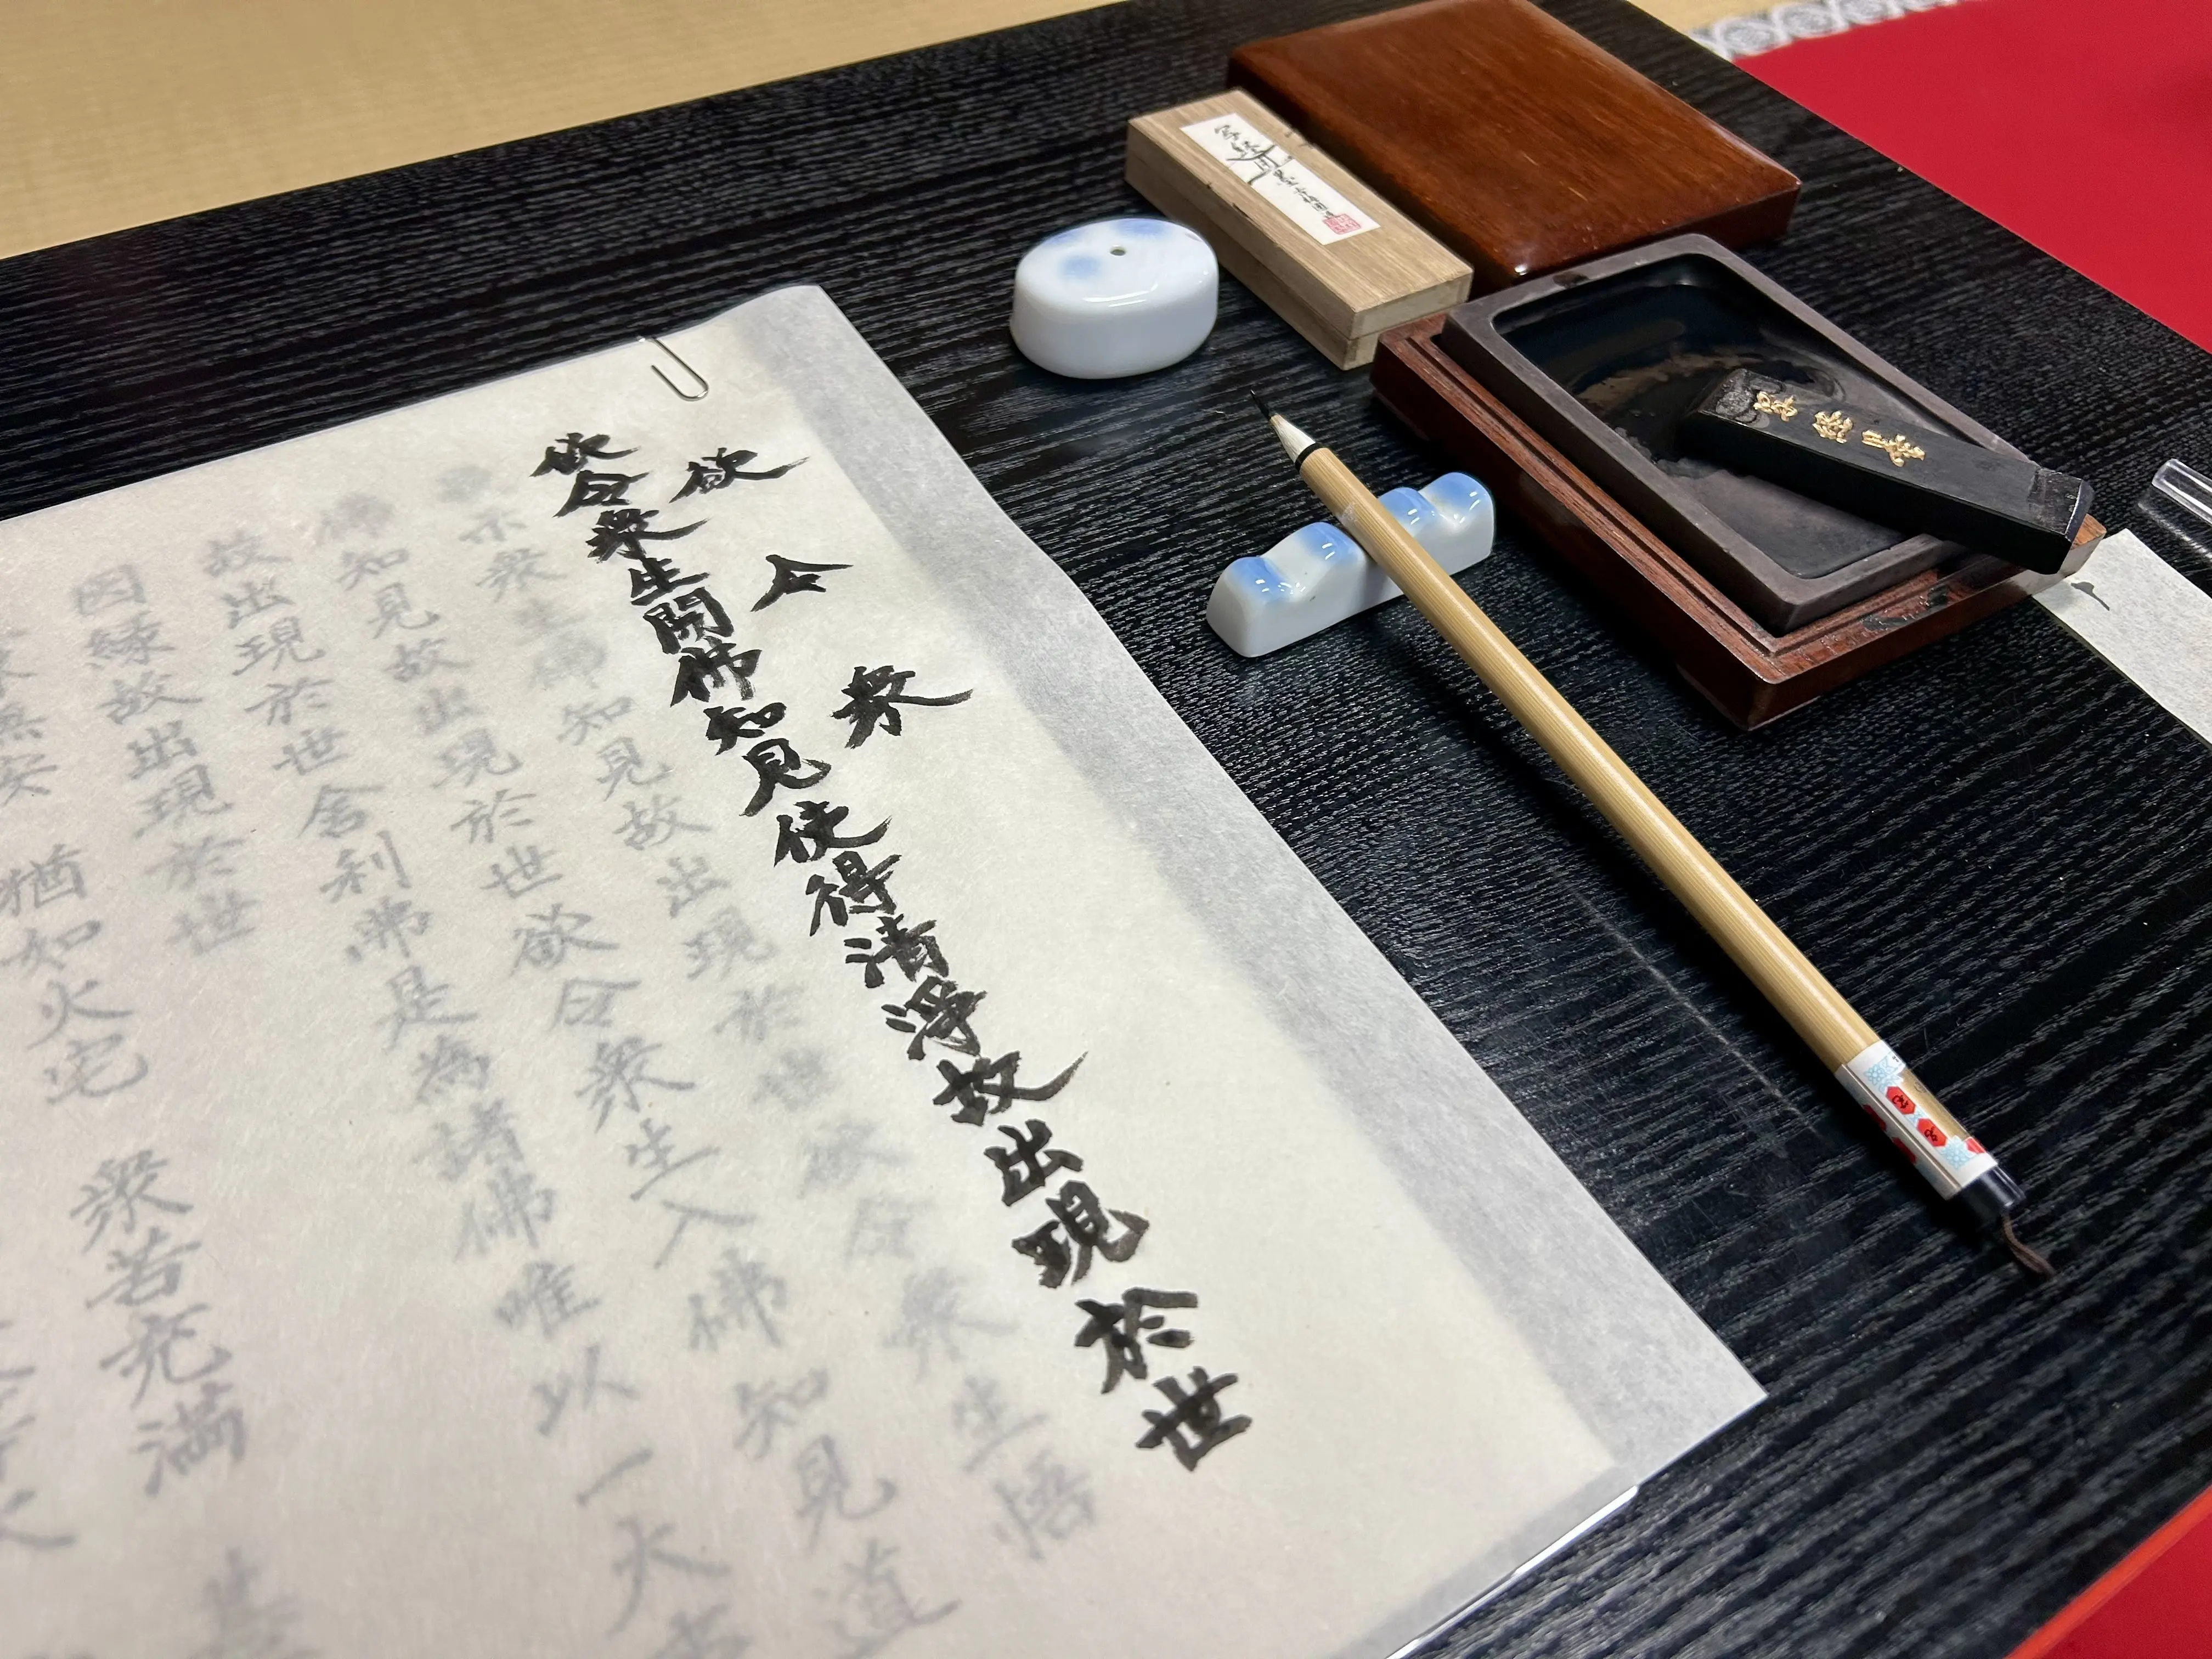 欲令衆
欲令衆生開佛知見使得清淨故出現於世
示衆生佛知見故出現於世欲令衆生悟
佛知見故出現於世欲令衆生入佛知見道
故出現於世舎利弗是為諸佛唯以一大事
因縁故出現於世
無安 猶如火宅 衆苦充満
写経用墨